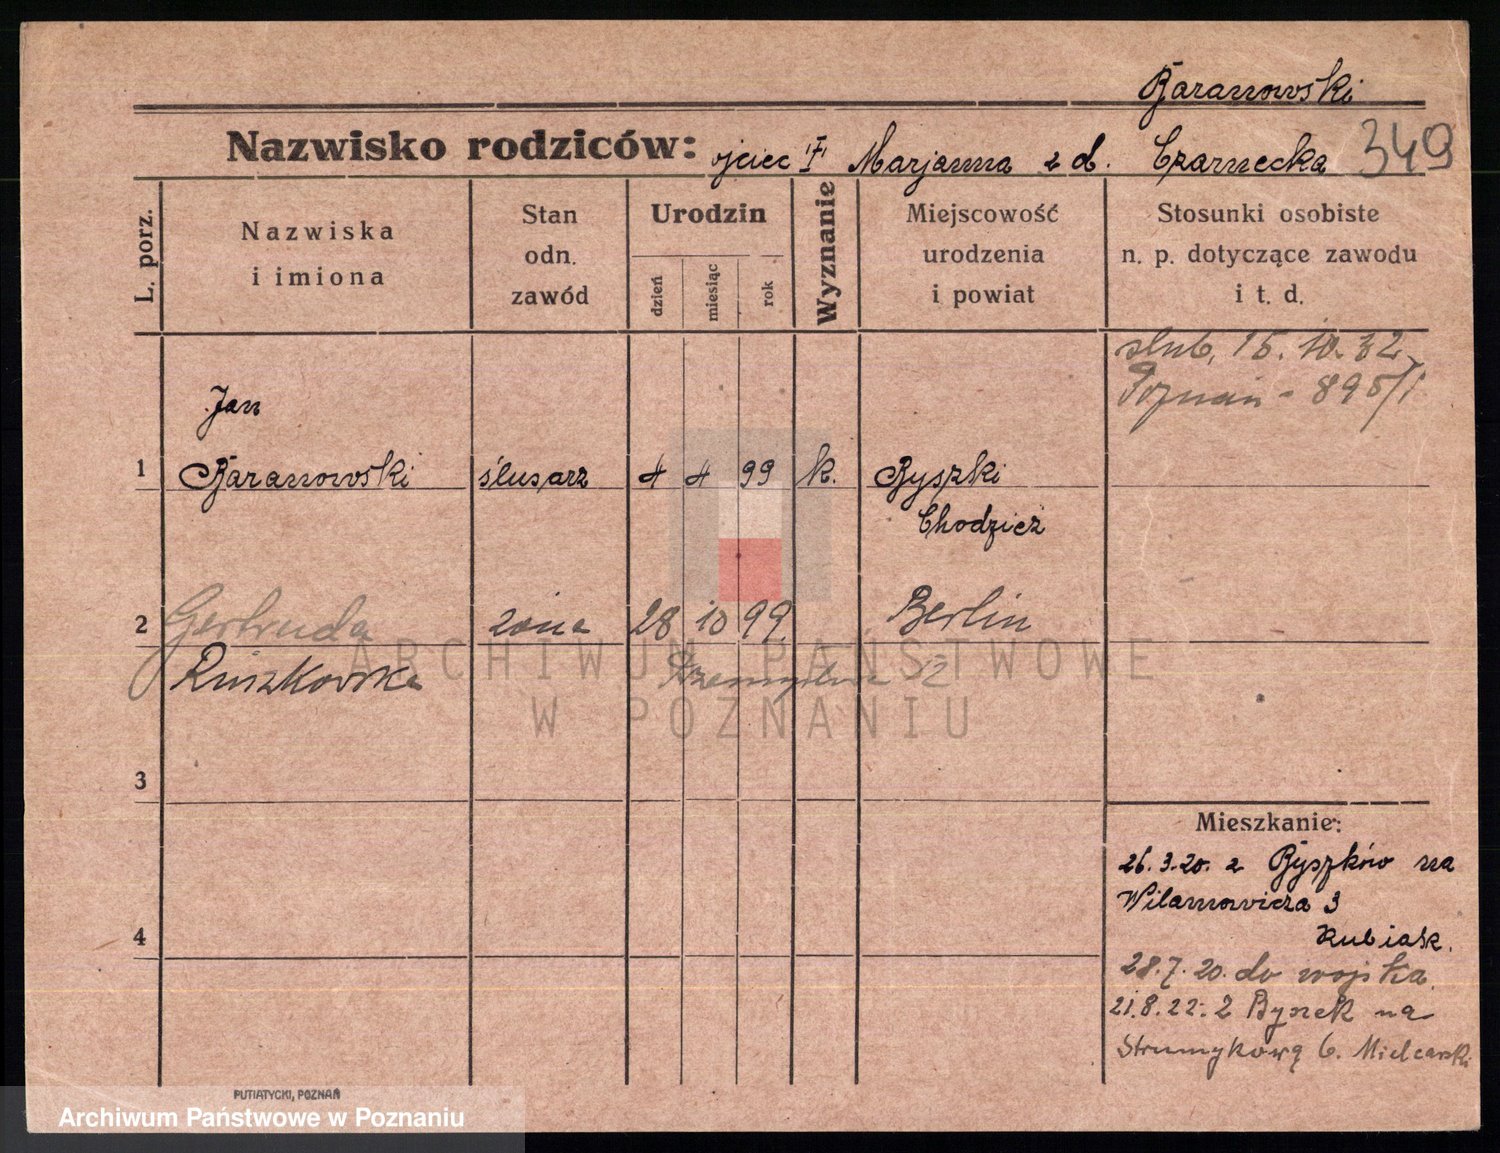 Baranowski
Nazwisko rodziców: ojciec Marjanna z d. Czarnecka 349
L. porz.
Nazwiska
i imiona
Stan
odn.
zawód
Urodzin
dzień
miesiąc
rok
Wyznanie
Miejscowość
urodzenia
i powiat
Stosunki osobiste
n. p. dotyczące zawodu
i t. d.
ślub, 15. 10. 32
Poznań - 895/I
Jan
1 Baranowski ślusarz 4 4 99 k. Byszki
Chodzież
2 Gertruda żona 28 10 99 Berlin
Ruszkowska
ARCHIWUM PAŃSTWOWE
W POZNANIU
3
Mieszkanie:
26.3.20. z Byszków na
Wilamowicza 3
Kubiak.
4
28.7.20. do wojska
21.8.22. z Byszek na
Strumykową 6. Mielcarski
PUTIATYCKI, POZNAŃ
Archiwum Państwowe w Poznaniu